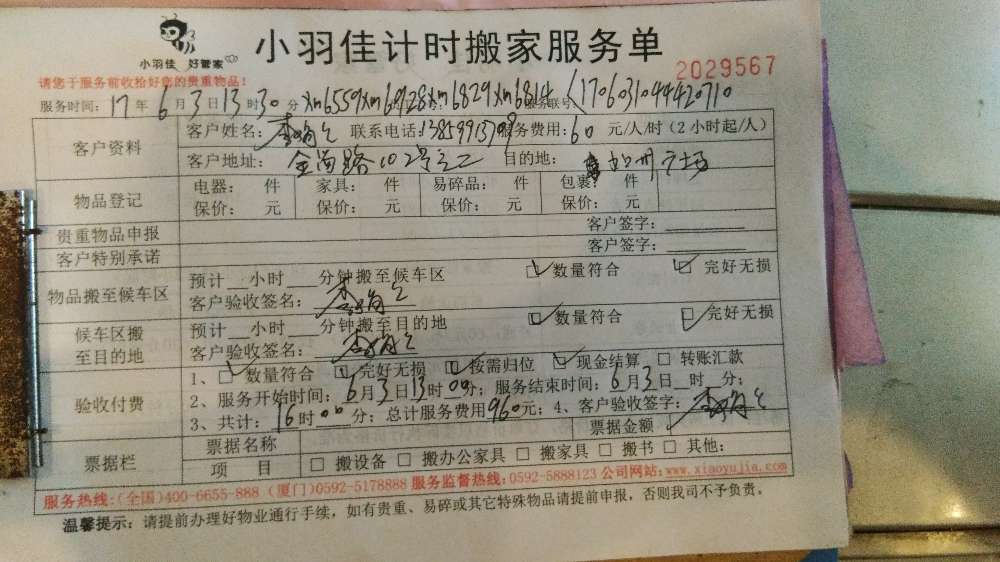 小羽佳 好管家
小羽佳计时搬家服务单
2029567
请您于服务前收拾好您的贵重物品!
服务时间: 17年6月3日13时30分 xm6559 xm6928 xm6829 xm6814 服务联号: 1706031044420710
客户资料
客户姓名: 李 联系电话: 13859913799 服务费用: 60元/人/时 (2小时起/人)
客户地址: 金尚路102号之二 目的地: 广场
物品登记
电器: 件 家具: 件 易碎品: 件 包裹: 件
保价: 元 保价: 元 保价: 元 保价: 元
贵重物品申报 客户签字:
客户特别承诺 客户签字:
物品搬至候车区
预计__小时__分钟搬至候车区 数量符合 完好无损
客户验收签名: 李
候车区搬至目的地
预计__小时__分钟搬至目的地 数量符合 完好无损
客户验收签名: 李
验收付费
1、□数量符合 □完好无损 □按需归位 □现金结算 □转账汇款
2、服务开始时间: 6月3日13时00分; 服务结束时间: 6月3日__时__分;
3、共计: 16时00分; 总计服务费用960元; 4、客户验收签字: 李
票据栏
票据名称 票据金额
项 目 □搬设备 □搬办公家具 □搬家具 □搬书 □其他:
服务热线:(全国)400-6655-888 (厦门)0592-5178888 服务监督热线:0592-5888123 公司网站:www.xiaoyujia.com
温馨提示: 请提前办理好物业通行手续, 如有贵重、易碎或其它特殊物品请提前申报, 否则我司不予负责。